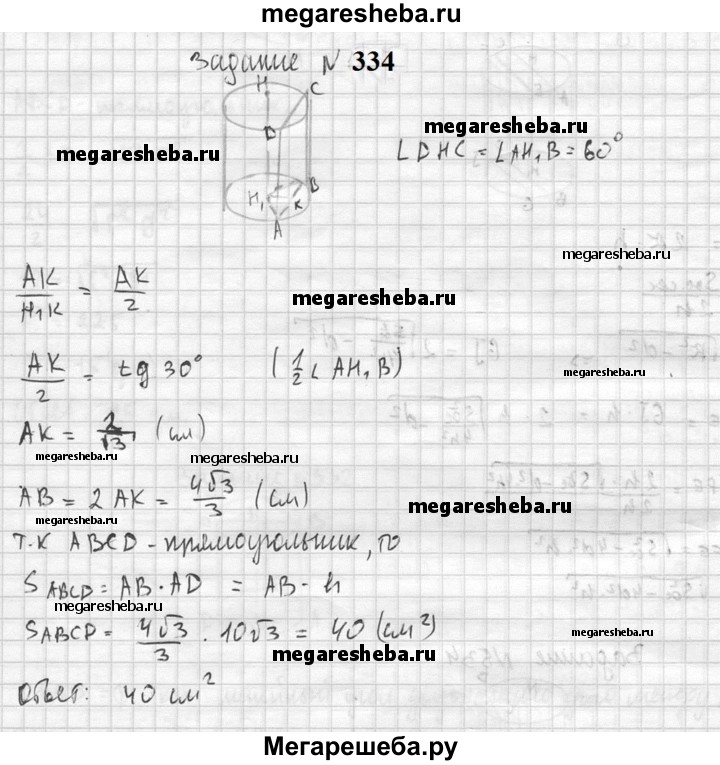 megaresheba.ru
Задание N 334
H
C
D
megaresheba.ru
∠DHC = ∠AH₁B = 60°
megaresheba.ru
H₁
B
K
A
megaresheba.ru
AK/H₁K = AK/2
megaresheba.ru
AK/2 = tg 30° (1/2 ∠ AH₁B)
megaresheba.ru
AK = 2/√3 (см)
megaresheba.ru
megaresheba.ru
AB = 2 AK = 4√3/3 (см)
megaresheba.ru
megaresheba.ru
т.к ABCD - прямоугольник, то
S ABCD = AB · AD = AB · h
megaresheba.ru
S ABCD = 4√3/3 · 10√3 = 40 (см²)
megaresheba.ru
megaresheba.ru
Ответ: 40 см²
Мегарешеба.ру